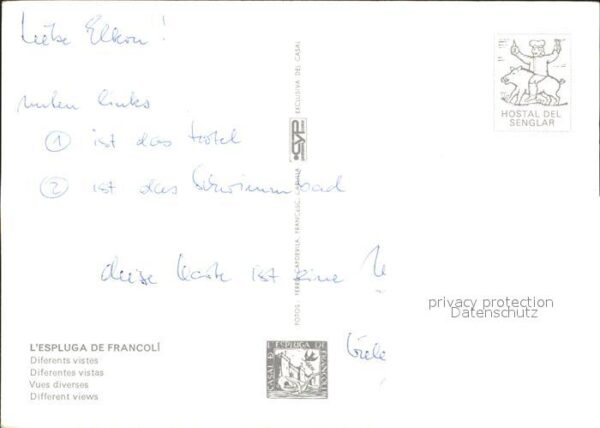 Liebe Eltern!
unten links
① ist das Hotel
② ist das Schwimmbad
diese Karte ist eine
L'ESPLUGA DE FRANCOLÍ
Diferents vistes
Diferentes vistas
Vues diverses
Different views
FOTOS: FERRE CAPDEVILA, FRANCESC CABALA
CYP
EXCLUSIVA DEL CASAL
CASAL DE L'ESPLUGA DE FRANCOLÍ
HOSTAL DEL
SENGLAR
privacy protection
Datenschutz